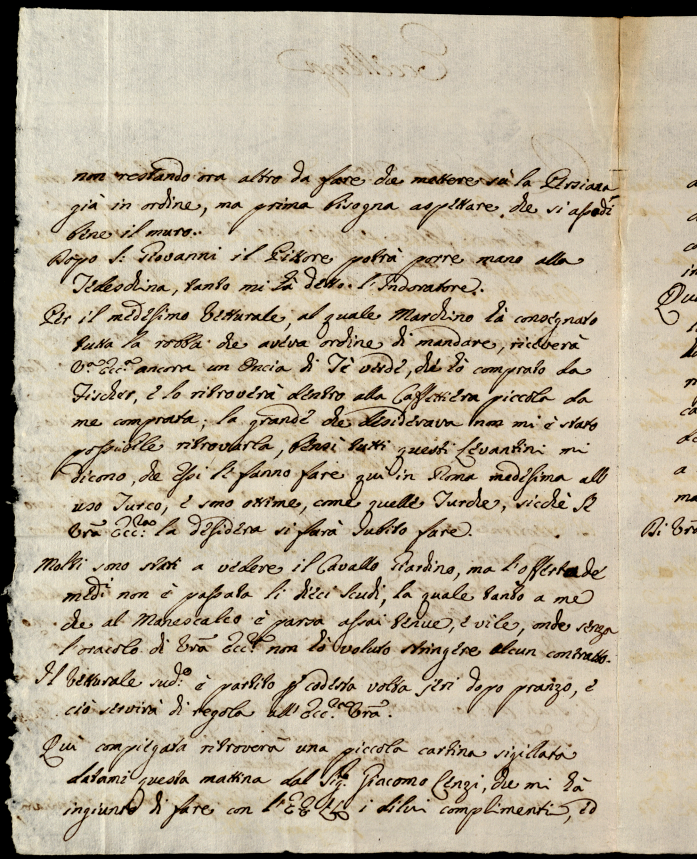 non restando ora altro da fare che mettere sù la Persiana
già in ordine, ma prima bisogna aspettare, che si asodi
bene il muro.
Dopo S: Giovanni il Pittore potrà porre mano alla
Tedeschina, tanto mi hà detto l'Indoratore.
Per il medesimo Vetturale, al quale Marchino hà consegnato
tutta la robba che aveva ordine di mandare, riceverà
V.ra Ecc.za ancora un Oncia di Tè verde, che hò comprato da
Fischer, e lo ritroverà dentro alla Caffettiera piccola da
me comprata; la grande che desiderava non mi è stato
possibile ritrovarla, bensì tutti questi Levantini mi
dicono, che essi li fanno fare quì in Roma medesima all
uso Turco, e sono ottime, come quelle Turche, sicchè se
Vrã Ecc.za la desidera si farà subito fare.
Molti sono stati a vedere il Cavallo Giardino, ma l'offerta de
medi non è passata li dieci scudi, la quale tanto a me
che al Manescalco è parsa assai tenue, e vile, onde senza
l'oracolo di Vrã Ecc.za non hò voluto stringere alcun contratto.
Il Vetturale sud.o è partito p codesta volta jeri dopo pranzo, e
ciò servirà di regola all'Ecc.za Vrã.
Quì compiegata ritroverà una piccola cartina sigillata
datami questa mattina dal Sig.r Giacomo Cenzi, che mi hà
ingiunto di fare con l' i di lui complimenti, ed
Excellenza
Qui
a
ma
Di Vrã